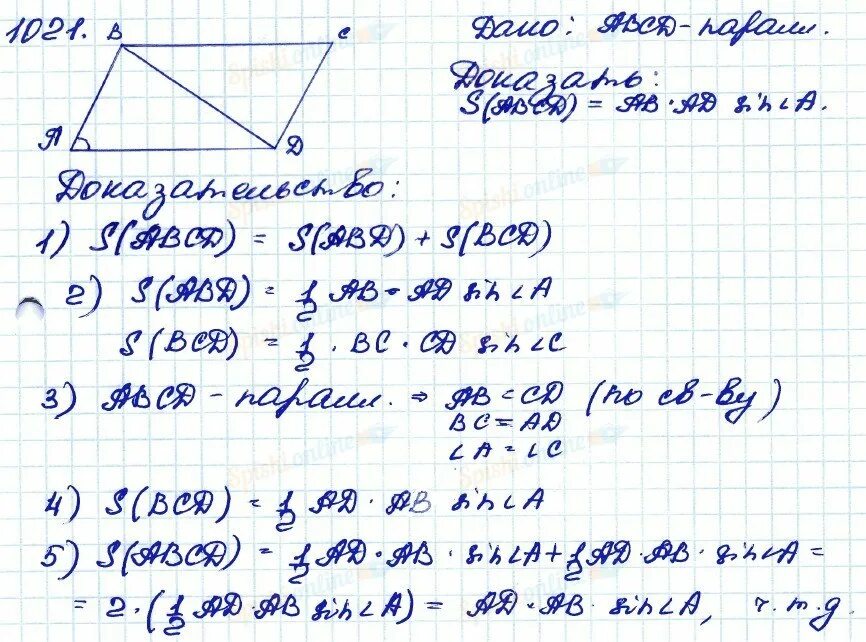 1021. B C Дано: ABCD - паралл.
Доказать:
S(ABCD) = AB · AD sin∠A.
A D
Доказательство:
1) S(ABCD) = S(ABD) + S(BCD)
2) S(ABD) = 1/2 AB · AD sin∠A
S(BCD) = 1/2 · BC · CD sin∠C
3) ABCD - паралл. ⇒ AB = CD (по св-ву)
BC = AD
∠A = ∠C
4) S(BCD) = 1/2 AD · AB sin∠A
5) S(ABCD) = 1/2 AD · AB · sin∠A + 1/2 AD · AB · sin∠A =
= 2 · (1/2 AD · AB sin∠A) = AD · AB · sin∠A, ч.т.д.